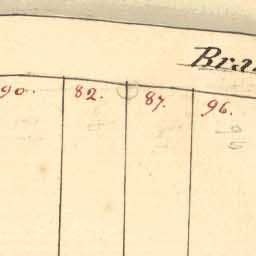 Bra
90. 82. 87. 96.